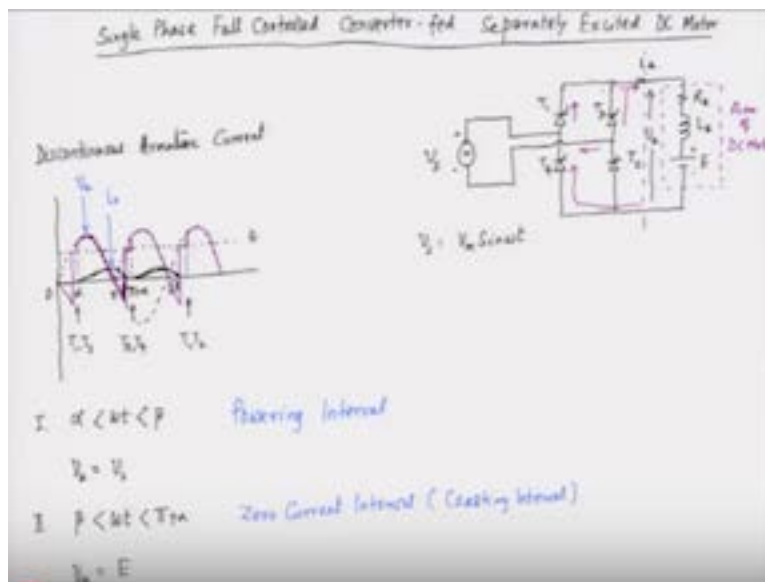 Single Phase Full Controlled Converter-fed Separately Excited DC Motor
Discontinuous Armature Current
Va
ia
E
0
α
β
π+α
T1T3
T2T4
T1T3
ia
T1
T3
T4
T2
Vs
Va
Ra
La
E
DC Motor
Vs = Vm Sinωt
I α < ωt < β Powering Interval
Va = Vs
II β < ωt < π+α Zero Current Interval (Coasting Interval)
Va = E